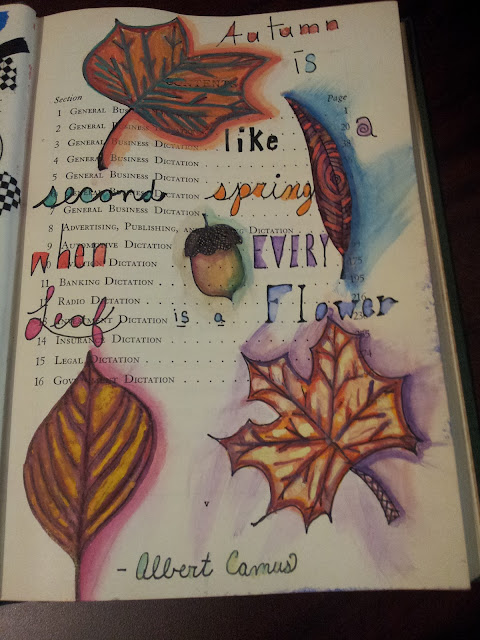 Autumn
is
CONTENTS
Section Page
1 GENERAL 1
2 GENERAL 20
like a
3 GENERAL BUSINESS DICTATION 38
4 GENERAL BUSINESS DICTATION
5 GENERAL BUSINESS DICTATION
second spring
GENERAL BUSINESS DICTATION
7 GENERAL BUSINESS DICTATION
8 ADVERTISING, PUBLISHING, AND DICTATION
9 AUTOMOTIVE DICTATION
when EVERY
DICTATION
11 BANKING DICTATION 195
12 RADIO DICTATION
Leaf is a Flower
DICTATION
14 INSURANCE DICTATION
15 LEGAL DICTATION
16 DICTATION
v
- Albert Camus